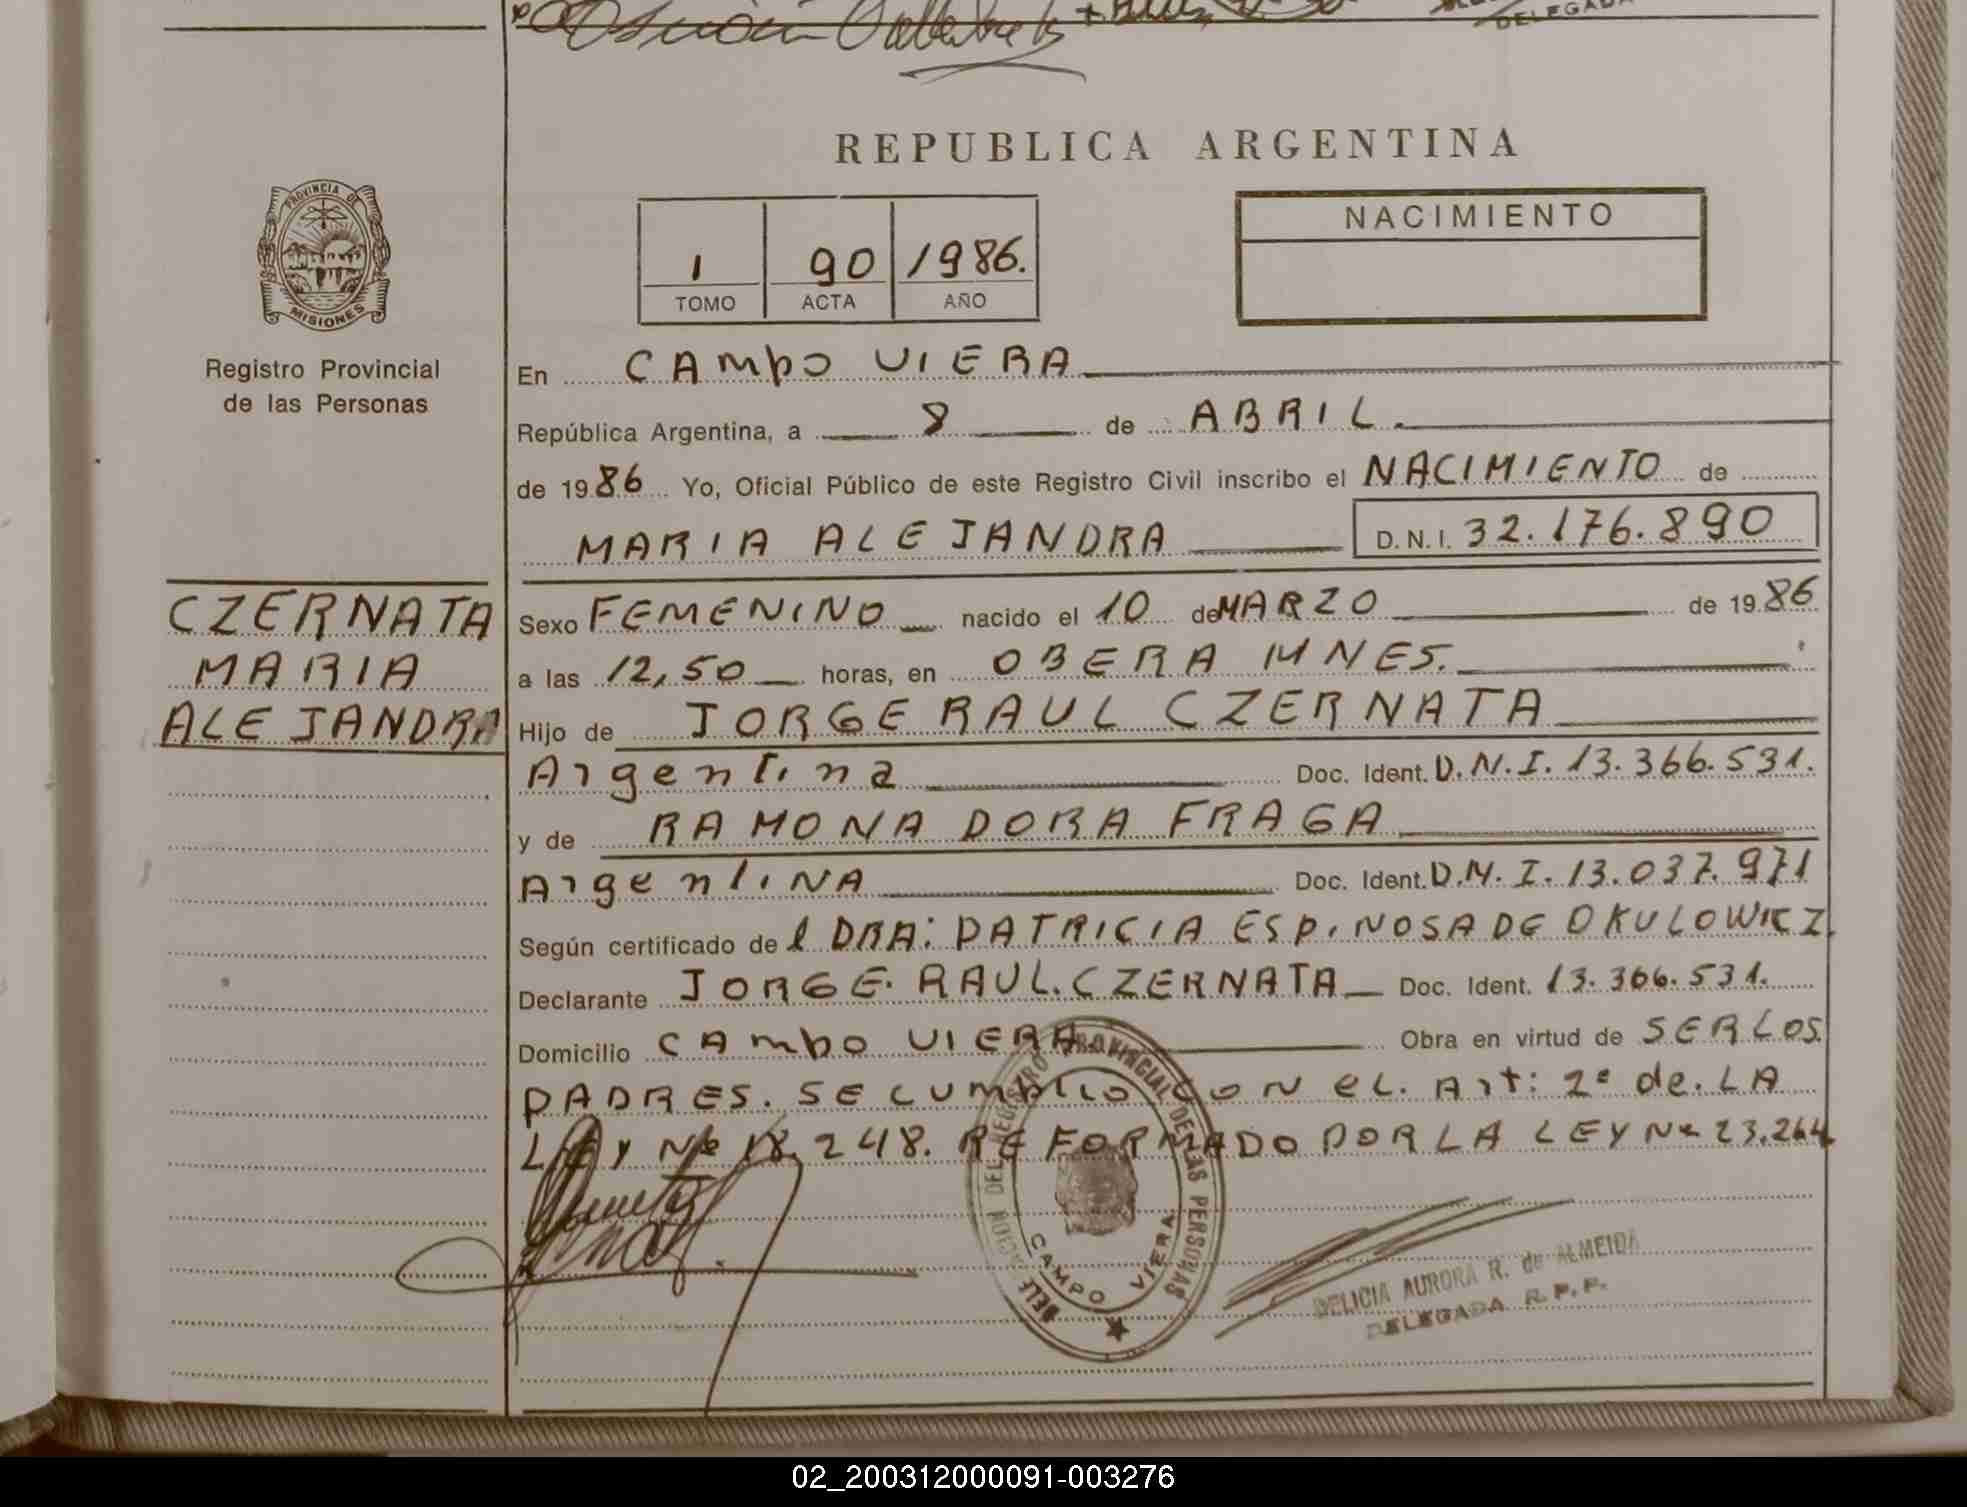 DELEGADA
REPUBLICA ARGENTINA
PROVINCIA DE
MISIONES
Registro Provincial
de las Personas
1 90 1986.
TOMO ACTA AÑO
NACIMIENTO
En CAMPO VIERA
República Argentina, a 8 de ABRIL
de 1986 Yo, Oficial Público de este Registro Civil inscribo el NACIMIENTO de
MARIA ALEJANDRA D.N.I. 32.176.890
CZERNATA
MARIA
ALEJANDRA
Sexo FEMENINO nacido el 10 de MARZO de 1986
a las 12,50 horas, en OBERA MNES.
Hijo de JORGE RAUL CZERNATA
Argentina Doc. Ident. D.N.I. 13.366.531.
y de RAMONA DORA FRAGA
ArgentiNA Doc. Ident. D.N.I. 13.037.971
Según certificado de l DRA: PATRICIA ESPINOSA DE OKULOWICZ.
Declarante JORGE. RAUL. CZERNATA Doc. Ident. 13.366.531.
Domicilio CAMPO VIERA Obra en virtud de SER LOS
PADRES. SE CUMPLIO CON EL. Art: 2º de. LA
LEY Nº 18.248. REFORMADO POR LA LEY Nº 23.264
DELEGACION DEL REGISTRO PROVINCIAL DE LAS PERSONAS
CAMPO VIERA
DELICIA AURORA R. de ALMEIDA
DELEGADA R.P.P.
02_200312000091-003276